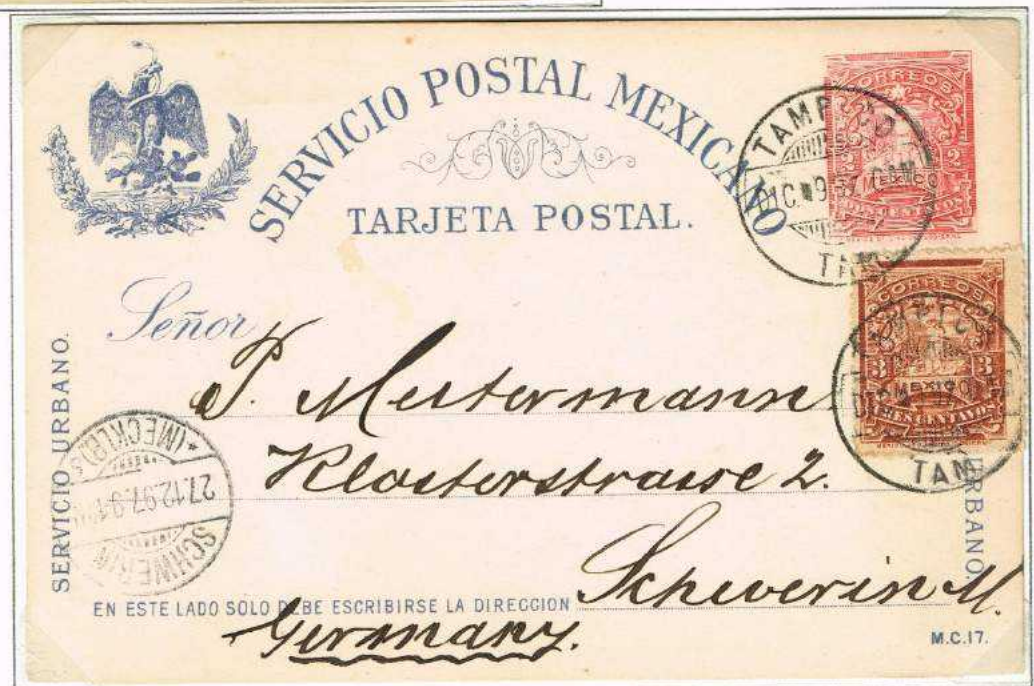 SERVICIO POSTAL MEXICANO
TARJETA POSTAL.
CORREOS
2 2
MEXICO
DOS CENTAVOS
TAMPICO
DIC 9 97 7 AM
TAM
CORREOS
3 3
MEXICO
TRES CENTAVOS
TAMPICO
TAM
Señor
P. Mestermann
Klosterstrasse 2.
Schwerin M.
Germany.
SERVICIO URBANO.
URBANO.
SCHWERIN
(MECKLB)
27.12.97.9-
EN ESTE LADO SOLO DEBE ESCRIBIRSE LA DIRECCION
M.C.17.